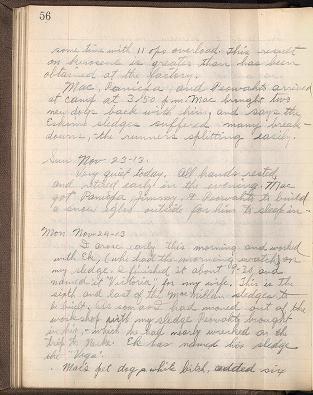 56
some time with 11 ops overload. This result
on kerosene is greater than has been
obtained at the factory.
Mac, Panicpa and Peowahto arrived
at camp at 3/50 p.m. Mac brought two
new dogs back with him, and says the
Eskimo sledges suffered many break-
downs, the runners splitting easily.
Sun Nov 23-13.
Very quiet today. All hands rested
and retired early in the evening. Mac
got Panicpa Jimmy & Peowahto to build
a snow igloo outside for him to sleep in.
Mon Nov 24-13
I arose early this morning and worked
with Ek, (who had the morning watch) on
my sledge. I finished it about 9-20, and
named it "Victoria" for my wife. This is the
sixth and last of the MacMillan sledges to
be built. As soon as I had moved out of the
work shop with my sledge Peowahto brought
in his, which he had nearly wrecked on the
trip to Neke. Ek has named his sledge
the "Vega".
Mac's pet dog, a white bitch, added six